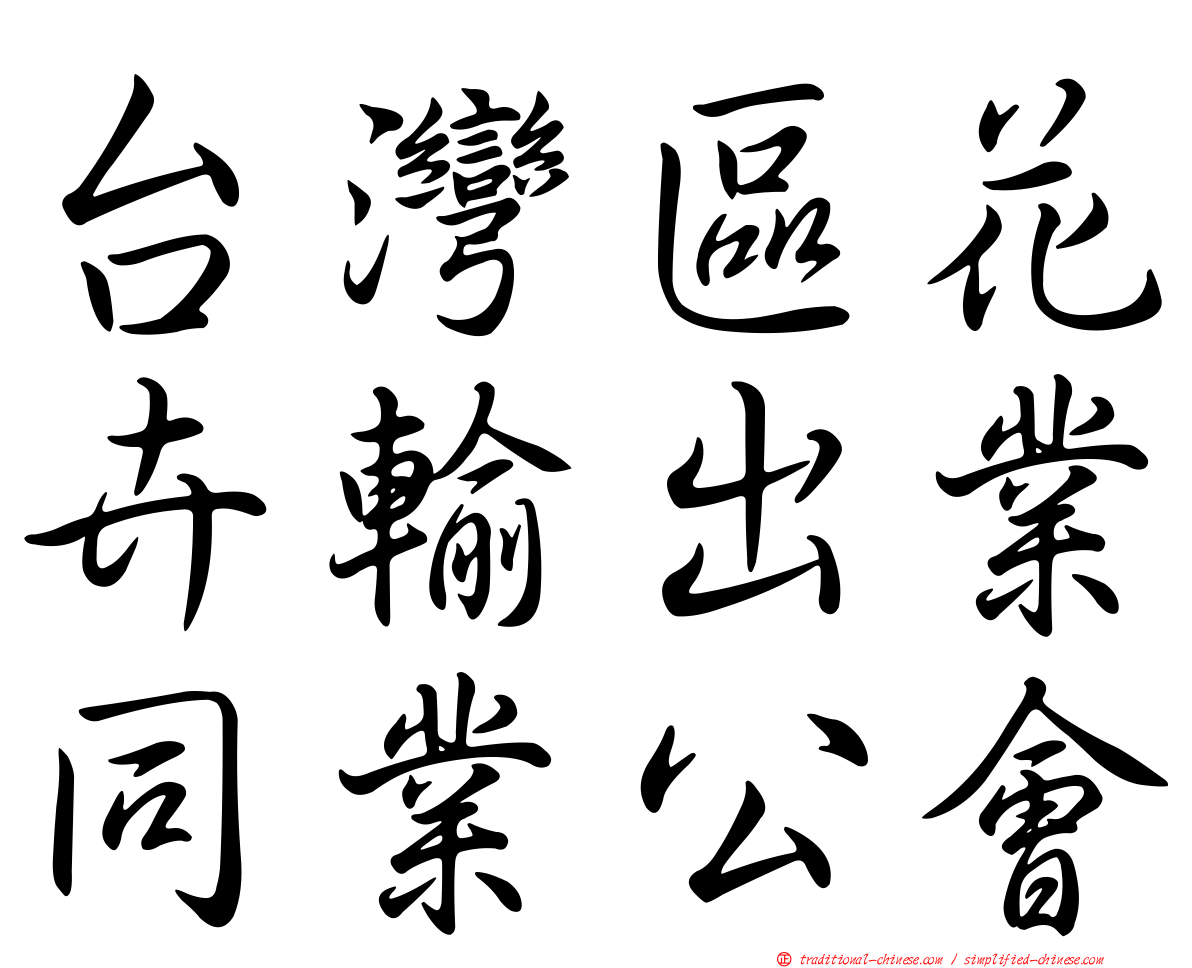 台灣區花
卉輸出業
同業公會
㊣ traditional-chinese.com / simplified-chinese.com